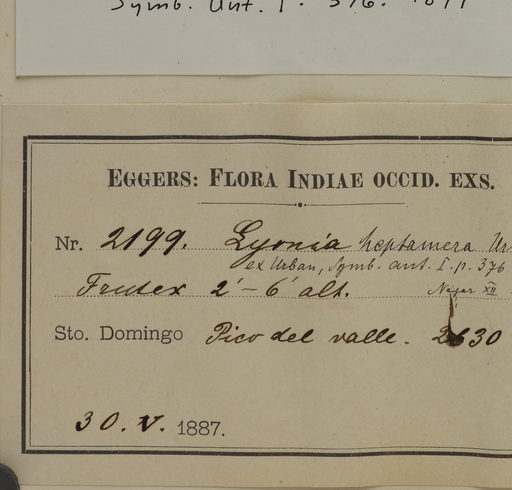 Symb. Ant. I. 376. 1899
EGGERS: FLORA INDIAE OCCID. EXS.
Nr. 2199. Lyonia heptamera Ur
ex Urban, Symb. ant. I. p. 376
Frutex 2'–6' alt. XII
Sto. Domingo Pico del valle. 2630
30. V. 1887.